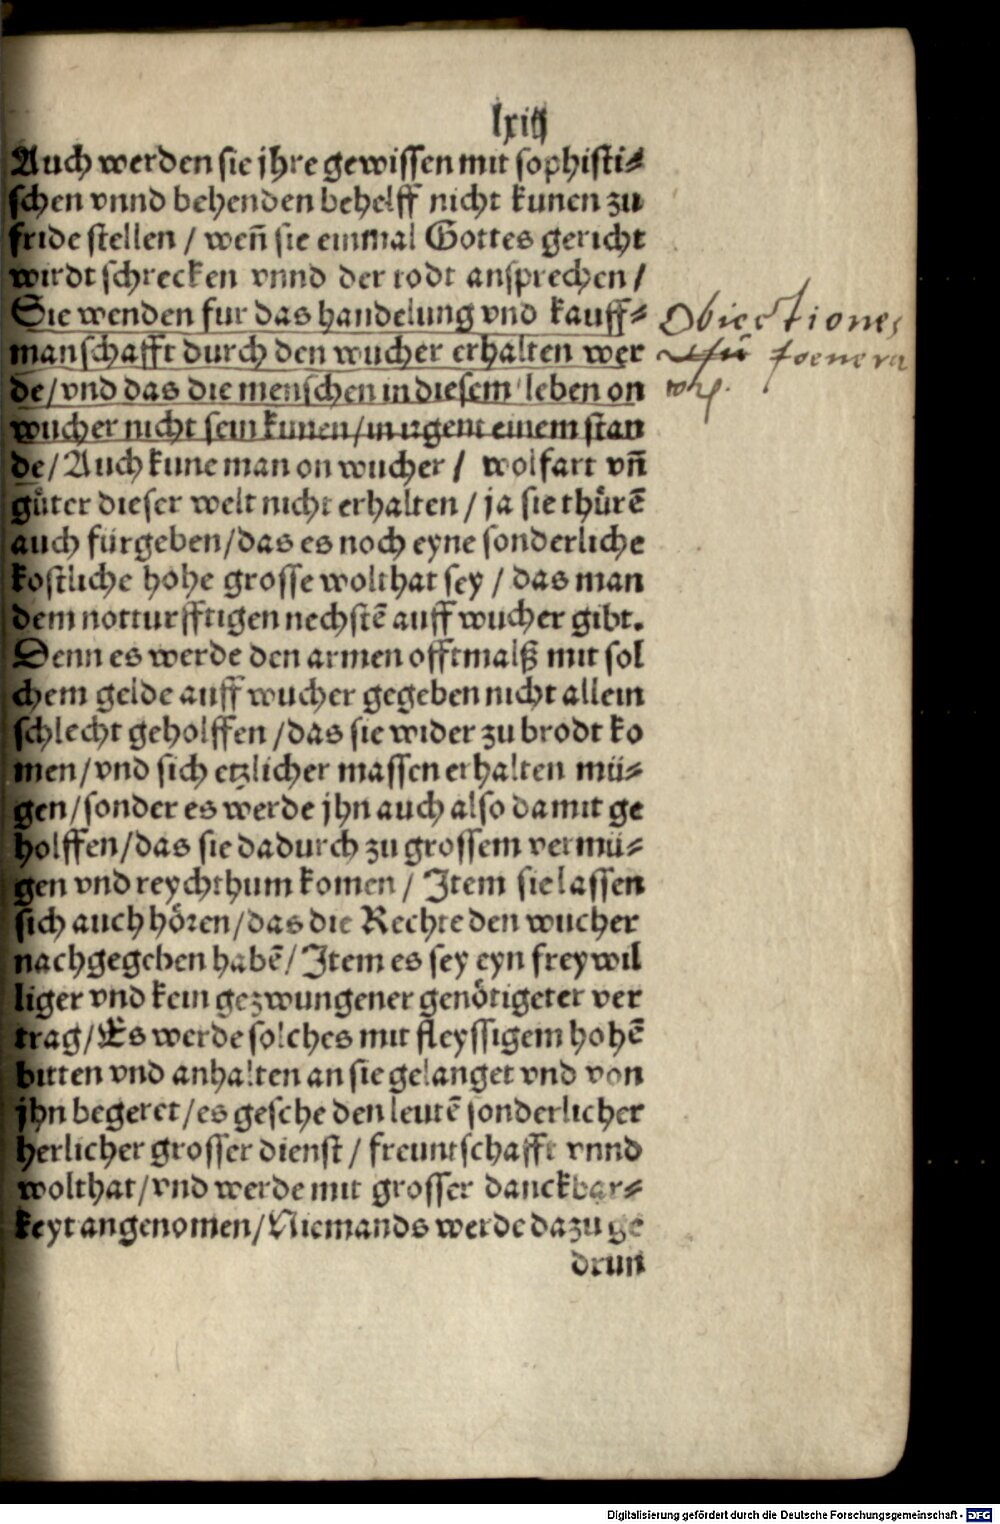 lxiij
Auch werden sie jhre gewissen mit sophisti⸗
schen vnnd behenden behelff nicht kunen zu
fride stellen / weñ sie einmal Gottes gericht
wirdt schrecken vnnd der todt ansprechen /
Sie wenden fur das handelung vnd kauff⸗
manschafft durch den wucher erhalten wer
de / vnd das die menschen in diesem leben on
wucher nicht sein kunen / in irgent einem stan
de / Auch kune man on wucher / wolfart vñ
gůter dieser welt nicht erhalten / ja sie thürẽ
auch fürgeben / das es noch eyne sonderliche
kostliche hohe grosse wolthat sey / das man
dem notturfftigen nechstẽ auff wucher gibt.
Denn es werde den armen offtmalß mit sol
chem gelde auff wucher gegeben nicht allein
schlecht geholffen / das sie wider zu brodt ko
men / vnd sich etzlicher massen erhalten mü⸗
gen / sonder es werde jhn auch also damit ge
holffen / das sie dadurch zu grossem vermü⸗
gen vnd reychthum komen / Item sie lassen
sich auch hören / das die Rechte den wucher
nachgegeben habẽ / Item es sey eyn freywil
liger vnd kein gezwungener genötigeter ver
trag / Es werde solches mit fleyssigem hohẽ
bitten vnd anhalten an sie gelanget vnd von
jhn begeret / es gesche den leutẽ sonderlicher
herlicher grosser dienst / freuntschafft vnnd
wolthat / vnd werde mit grosser danckbar⸗
keyt angenomen / Niemands werde dazu ge
drun
Obiectiones
foenera
Digitalisierung gefördert durch die Deutsche Forschungsgemeinschaft - DFG